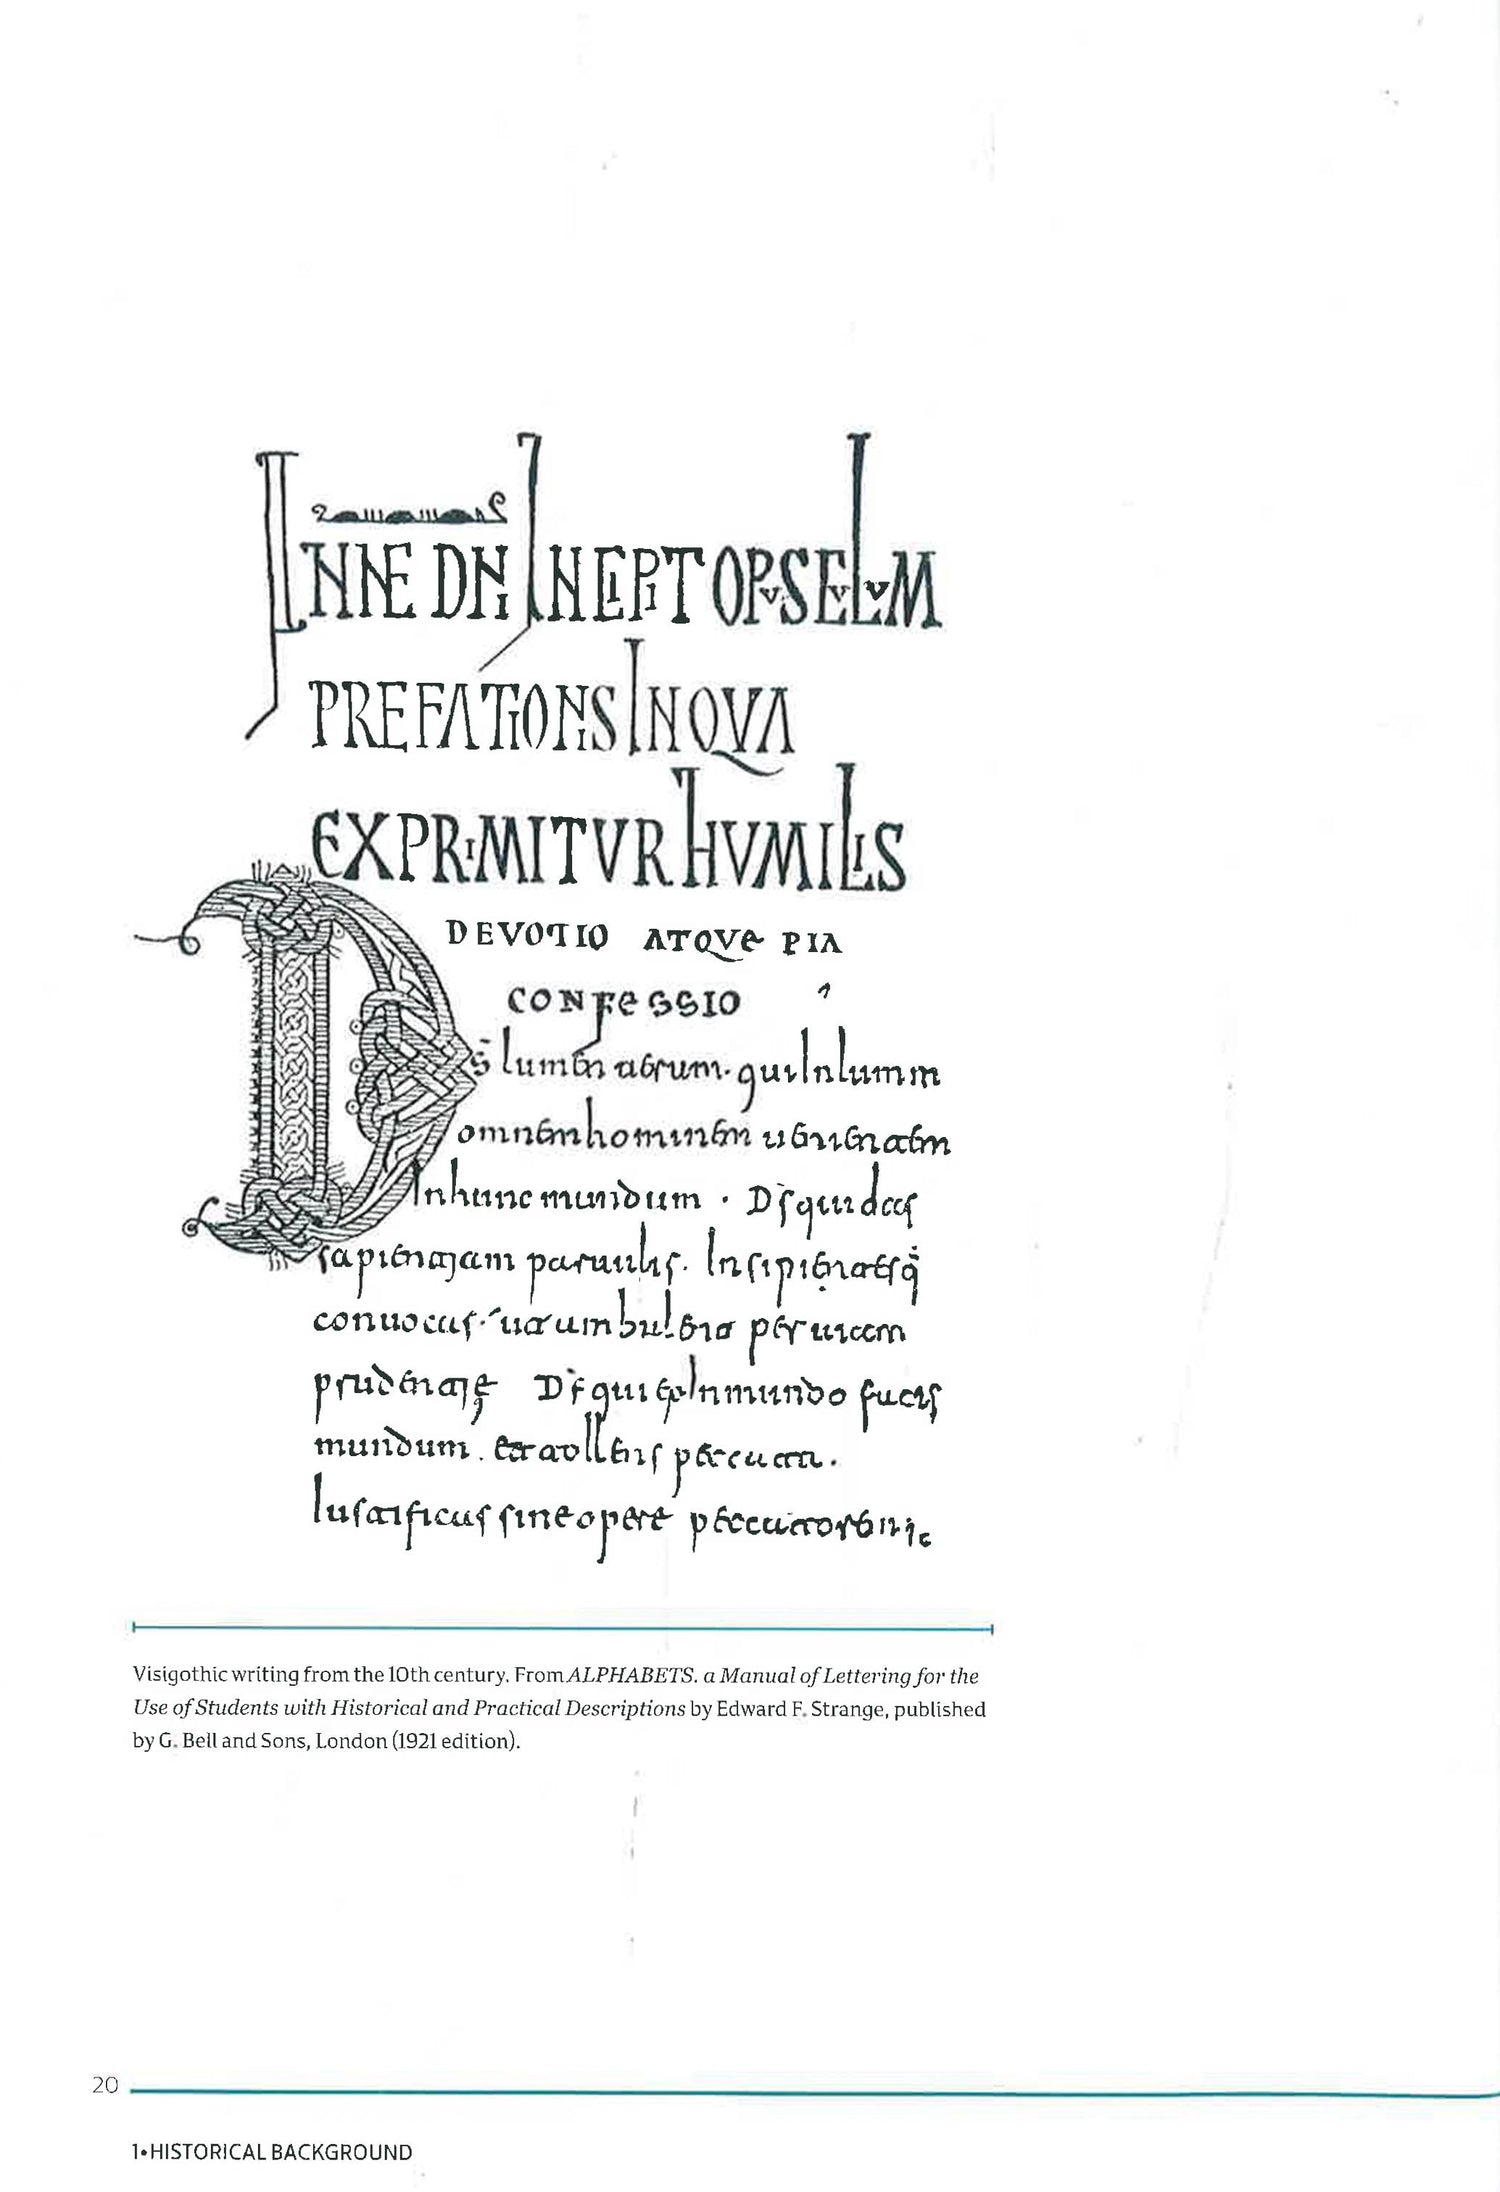 IN NE DNI INCIPIT OPUSCULUM
PREFATIONIS IN QVA
EXPRIMITVR HVMILIS
DEVOTIO ATQVE PIA
CONFESSIO
DS lumen uerum. qui In lumin
omnem hominem uenientem
In hunc mundum . Ds qui das
sapientiam paruulis. Insipientesq
conuocas
prudentie Ds qui In mundo
mundum . et tollens peccata.
Iustificas sine opere
Visigothic writing from the 10th century. From ALPHABETS. a Manual of Lettering for the
Use of Students with Historical and Practical Descriptions by Edward F. Strange, published
by G. Bell and Sons, London (1921 edition).
20
1•HISTORICAL BACKGROUND